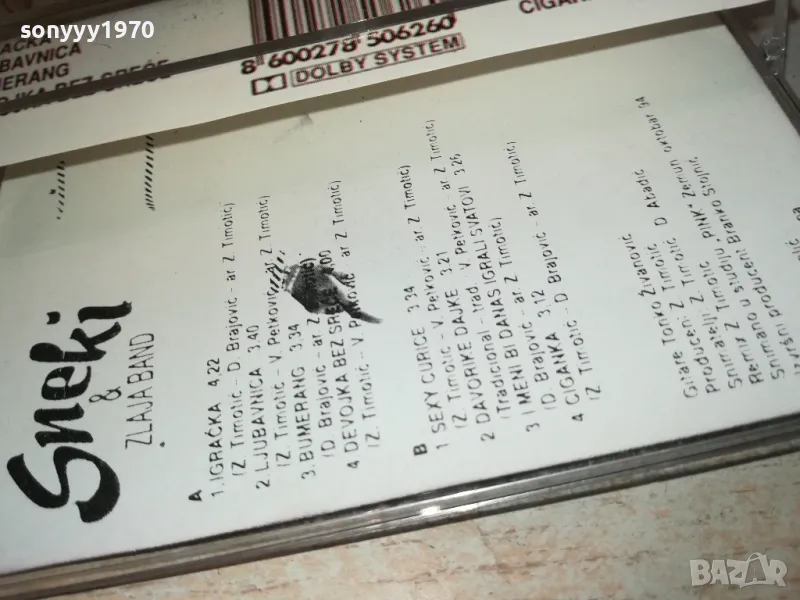 sonyyy1970
BAVNICA
ERANG
JKA BEZ SREĆE
CIGAN
8 600278 506260
DOLBY SYSTEM
Sneki
&
ZLAJA BAND
A
1. IGRAČKA 4.22
(Z. Timotić - D. Brajović - ar Z Timotić)
2 LJUBAVNICA 3.40
(Z. Timotić - V. Petković - ar Z. Timotić)
3. BUMERANG 3.34
(D Brajović - ar Z Timotić)
4 DEVOJKA BEZ SREĆE
(Z. Timotić - V. Petković ar Z Timotić)
B
1 SEXY CURICE 3.34
(Z. Timotić - V. Petković - ar Z. Timotić)
2 DAVORIKE DAJKE 3.21
(Tradicional - trad V. Petković - ar. Z. Timotić)
3 I MENI BI DANAS IGRALI SVATOVI 3.26
(D. Brajović - ar. Z Timotić)
4 CIGANKA 3.12
(Z Timotić - D. Brajović - ar. Z. Timotić)
Gitare Tonko Živanović
Produceni Z. Timotić D Atadić
Promatelji Z. Timotić
Snimano u studiju "PINK" Zemun oktobar 94
Remix Z Timotić
Snimano producent Branko Stojnić
Bazar